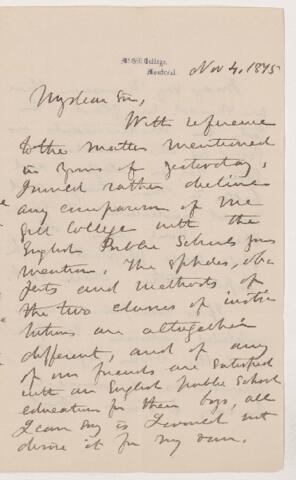 McGill College,
Montreal.
Nov 4, 1875
My dear Sir,
With reference
to the matter mentioned
in yours of yesterday,
I would rather decline
any comparison of Mc
Gill College with the
English Public Schools you
mention. The spheres, ob
jects and methods of
the two classes of insti
tutions are altogether
different, and if any
of our friends are satisfied
with an English Public School
education for their boys, all
I can say is I would not
desire it for my own.